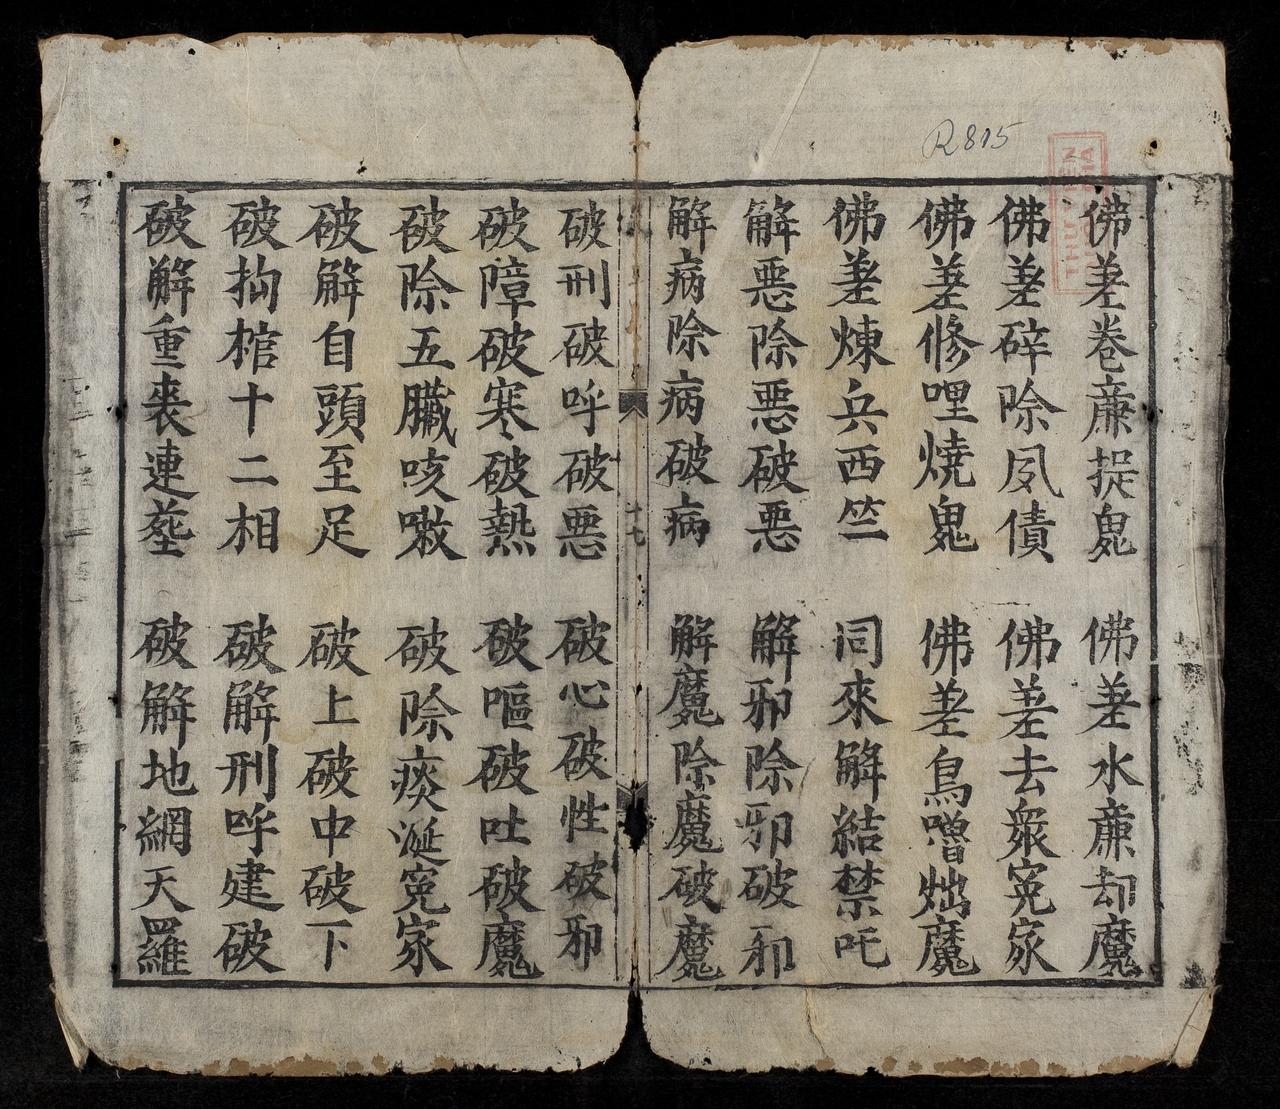 R815
佛差卷簾捉鬼 佛差水簾却魔
佛差碎除夙債 佛差去衆冤家
佛差修哩燒鬼 佛差鳥嚕㷀魔
佛差煉兵西竺 同來解結禁吒
解惡除惡破惡 解邪除邪破邪
解病除病破病 解魔除魔破魔
十七
破刑破呼破惡 破心破性破邪
破障破寒破熱 破嘔破吐破魔
破除五臟咳嗽 破除痰涎冤家
破解自頭至足 破上破中破下
破拘棺十二相 破解刑呼建破
破解重喪連塟 破解地網天羅